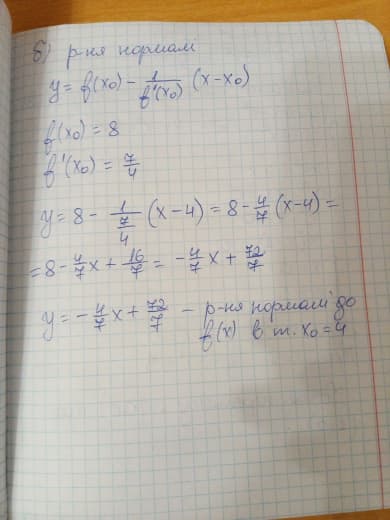 б) р-ня нормалі
y = f(x₀) - 1/f'(x₀) (x-x₀)
f(x₀) = 8
f'(x₀) = 7/4
y = 8 - 1/(7/4) (x-4) = 8 - 4/7 (x-4) =
= 8 - 4/7 x + 16/7 = - 4/7 x + 72/7
y = - 4/7 x + 72/7 - р-ня нормалі до
f(x) в т. x₀ = 4